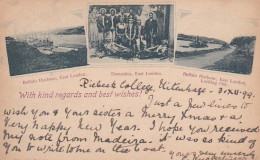 Buffalo Harbour, East London.
Domestics, East London.
Buffalo Harbour, East London,
Looking Out.
With kind regards and best wishes!
Riebeek College, Uitenhage. 3.XII.99
Just a few lines to
wish you & your sisters a Merry Xmas & a
very happy New Year. I hope you received
my note from Madeira. It was kind of you
to write me on the boat.